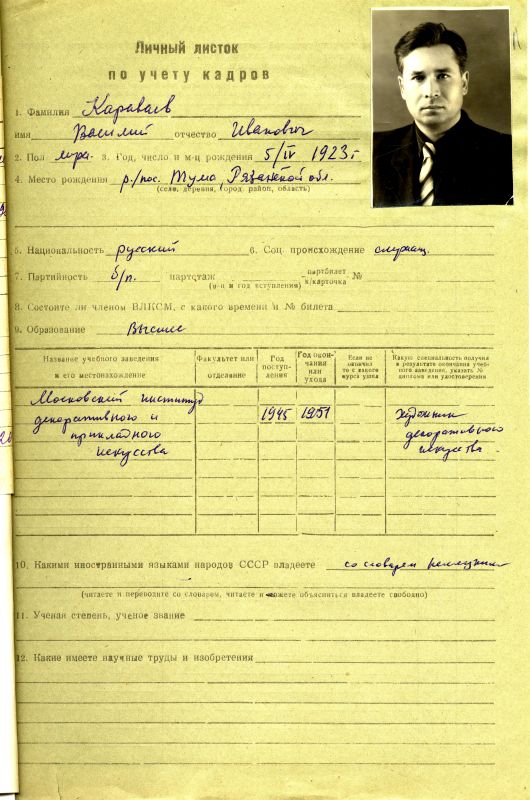 Личный листок
по учету кадров
1. Фамилия Караваев
имя Василий отчество Иванович
2. Пол муж. 3. Год, число и м-ц рождения 5/IV 1923 г
4. Место рождения р./пос. Тума Рязанской обл.
(село, деревня, город, район, область)
5. Национальность русский 6. Соц. происхождение служащ.
7. Партийность б/п. партстаж партбилет
(и-п м год вступления) к/карточка №
8. Состоите ли членом ВЛКСМ, с какого времени и № билета
9. Образование Высшее
Название учебного заведения и его местонахождение
Факультет или отделение
Год поступ-ления
Год окон-чания или ухода
Если не окончил, то с какого курса ушел
Какую специальность получил в результате окончания учеб-ного заведения, указать № диплома или удостоверения
Московский институт
декоративного и 1945 1951 Художник
прикладного декоративного
искусства искусства
10. Какими иностранными языками народов СССР владеете со словарем немецким
(читаете и переводите со словарем, читаете и можете объясниться владеете свободно)
11. Ученая степень, ученое звание
12. Какие имеете научные труды и изобретения